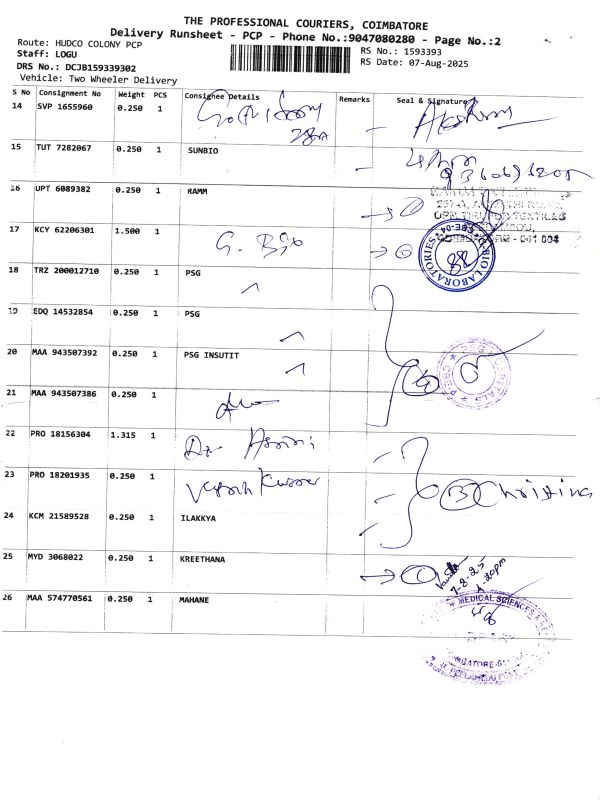 THE PROFESSIONAL COURIERS, COIMBATORE
Delivery Runsheet - PCP - Phone No.:9047080280 - Page No.:2
Route: HUDCO COLONY PCP
Staff: LOGU
DRS No.: DCJB159339302
Vehicle: Two Wheeler Delivery
RS No.: 1593393
RS Date: 07-Aug-2025
S No Consignment No Weight PCS Consignee Details Remarks Seal & Signature
14 SVP 1655960 0.250 1
15 TUT 7282067 0.250 1 SUNBIO
16 UPT 6089382 0.250 1 RAMM
17 KCY 62206301 1.500 1 G. Bio
BIO LABORATORIES
18 TRZ 200012710 0.250 1 PSG
19 EDQ 14532854 0.250 1 PSG
20 MAA 943507392 0.250 1 PSG INSUTIT
4
21 MAA 943507386 0.250 1
22 PRO 18156304 1.315 1 Dr
23 PRO 18201935 0.250 1 Kumar
3 Christina
24 KCM 21589528 0.250 1 ILAKKYA
25 MYD 3068022 0.250 1 KREETHANA
7-8-25
1.20pm
26 MAA 574770561 0.250 1 MAHANE
MEDICAL SCIENCES &